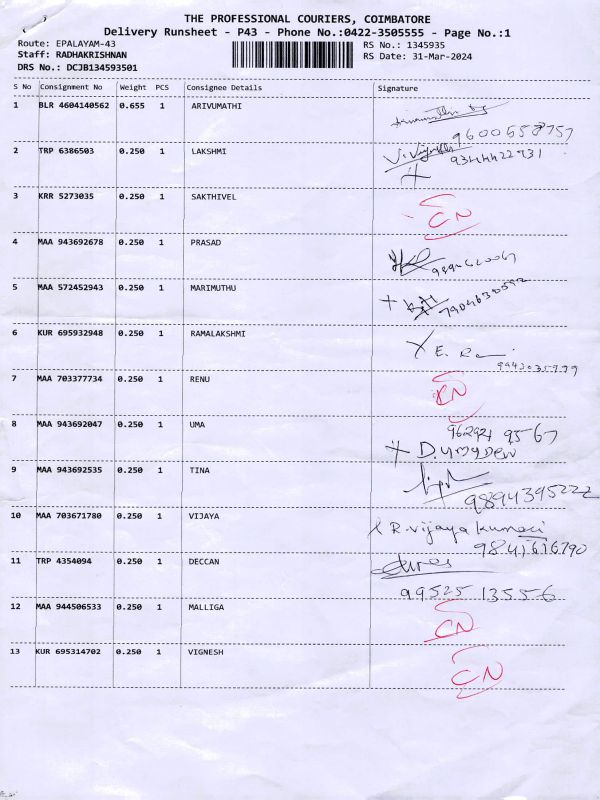 THE PROFESSIONAL COURIERS, COIMBATORE
Delivery Runsheet - P43 - Phone No.:0422-3505555 - Page No.:1
Route: EPALAYAM-43
RS No.: 1345935
Staff: RADHAKRISHNAN
RS Date: 31-Mar-2024
DRS No.: DCJB134593501
S No Consignment No Weight PCS Consignee Details Signature
1 BLR 4604140562 0.655 1 ARIVUMATHI
2 TRP 6386503 0.250 1 LAKSHMI
3 KRR 5273035 0.250 1 SAKTHIVEL CN
4 MAA 943692678 0.250 1 PRASAD
5 MAA 572452943 0.250 1 MARIMUTHU
6 KUR 695932948 0.250 1 RAMALAKSHMI
7 MAA 703377734 0.250 1 RENU CN
8 MAA 943692047 0.250 1 UMA
9 MAA 943692535 0.250 1 TINA
9894395222
10 MAA 703671780 0.250 1 VIJAYA R.vijaya kumari
9841616790
11 TRP 4354094 0.250 1 DECCAN
99525 13556
12 MAA 944506533 0.250 1 MALLIGA CN
13 KUR 695314702 0.250 1 VIGNESH CN